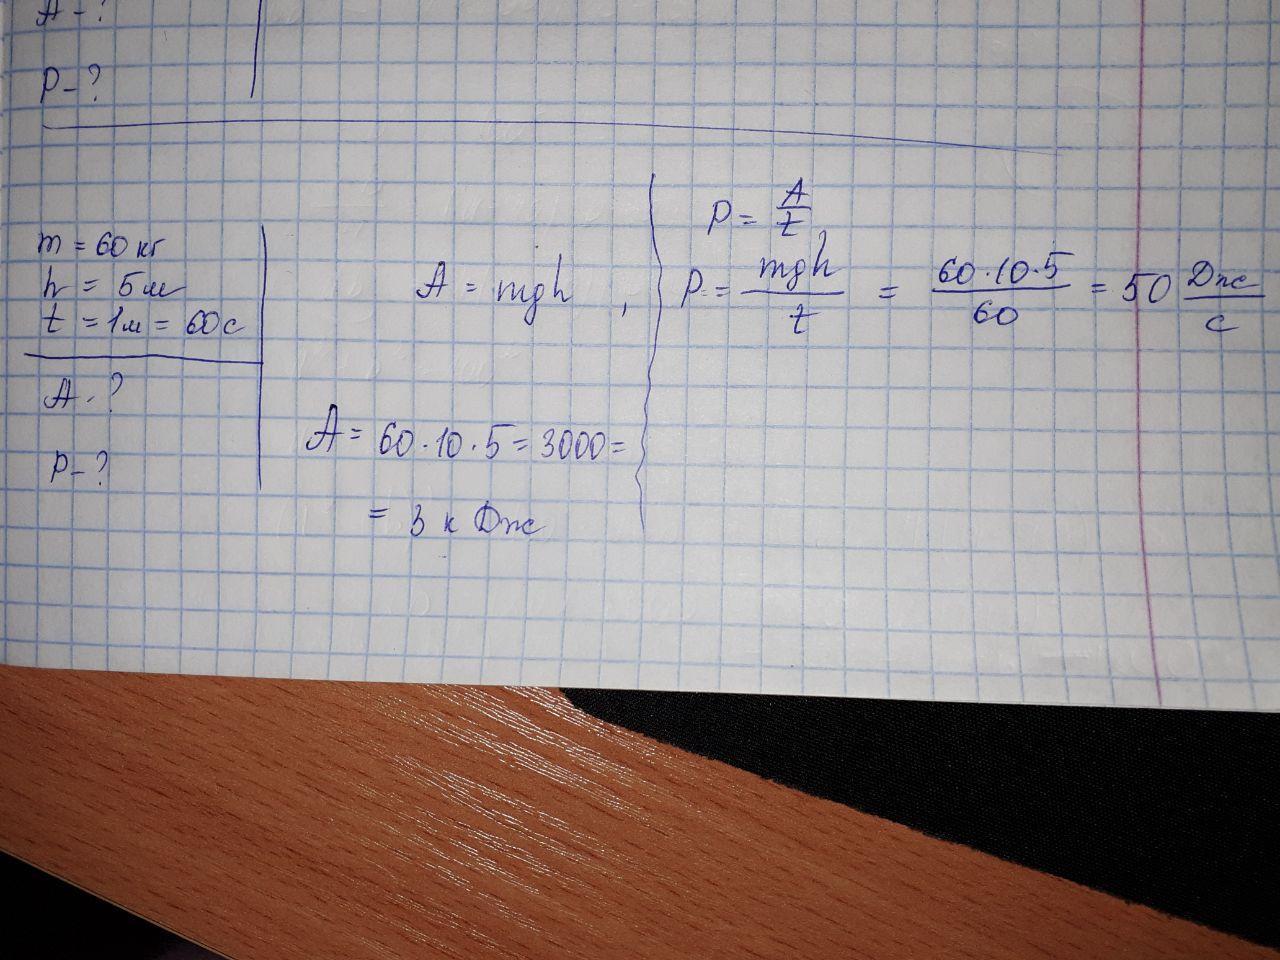 A - ?
P - ?
m = 60 кг
h = 5 м
t = 1м = 60 с
A - ?
P - ?
A = mgh ,
A = 60 · 10 · 5 = 3000 =
= 3 к Дж
P = A/t
P = mgh/t = 60·10·5/60 = 50 Дж/с